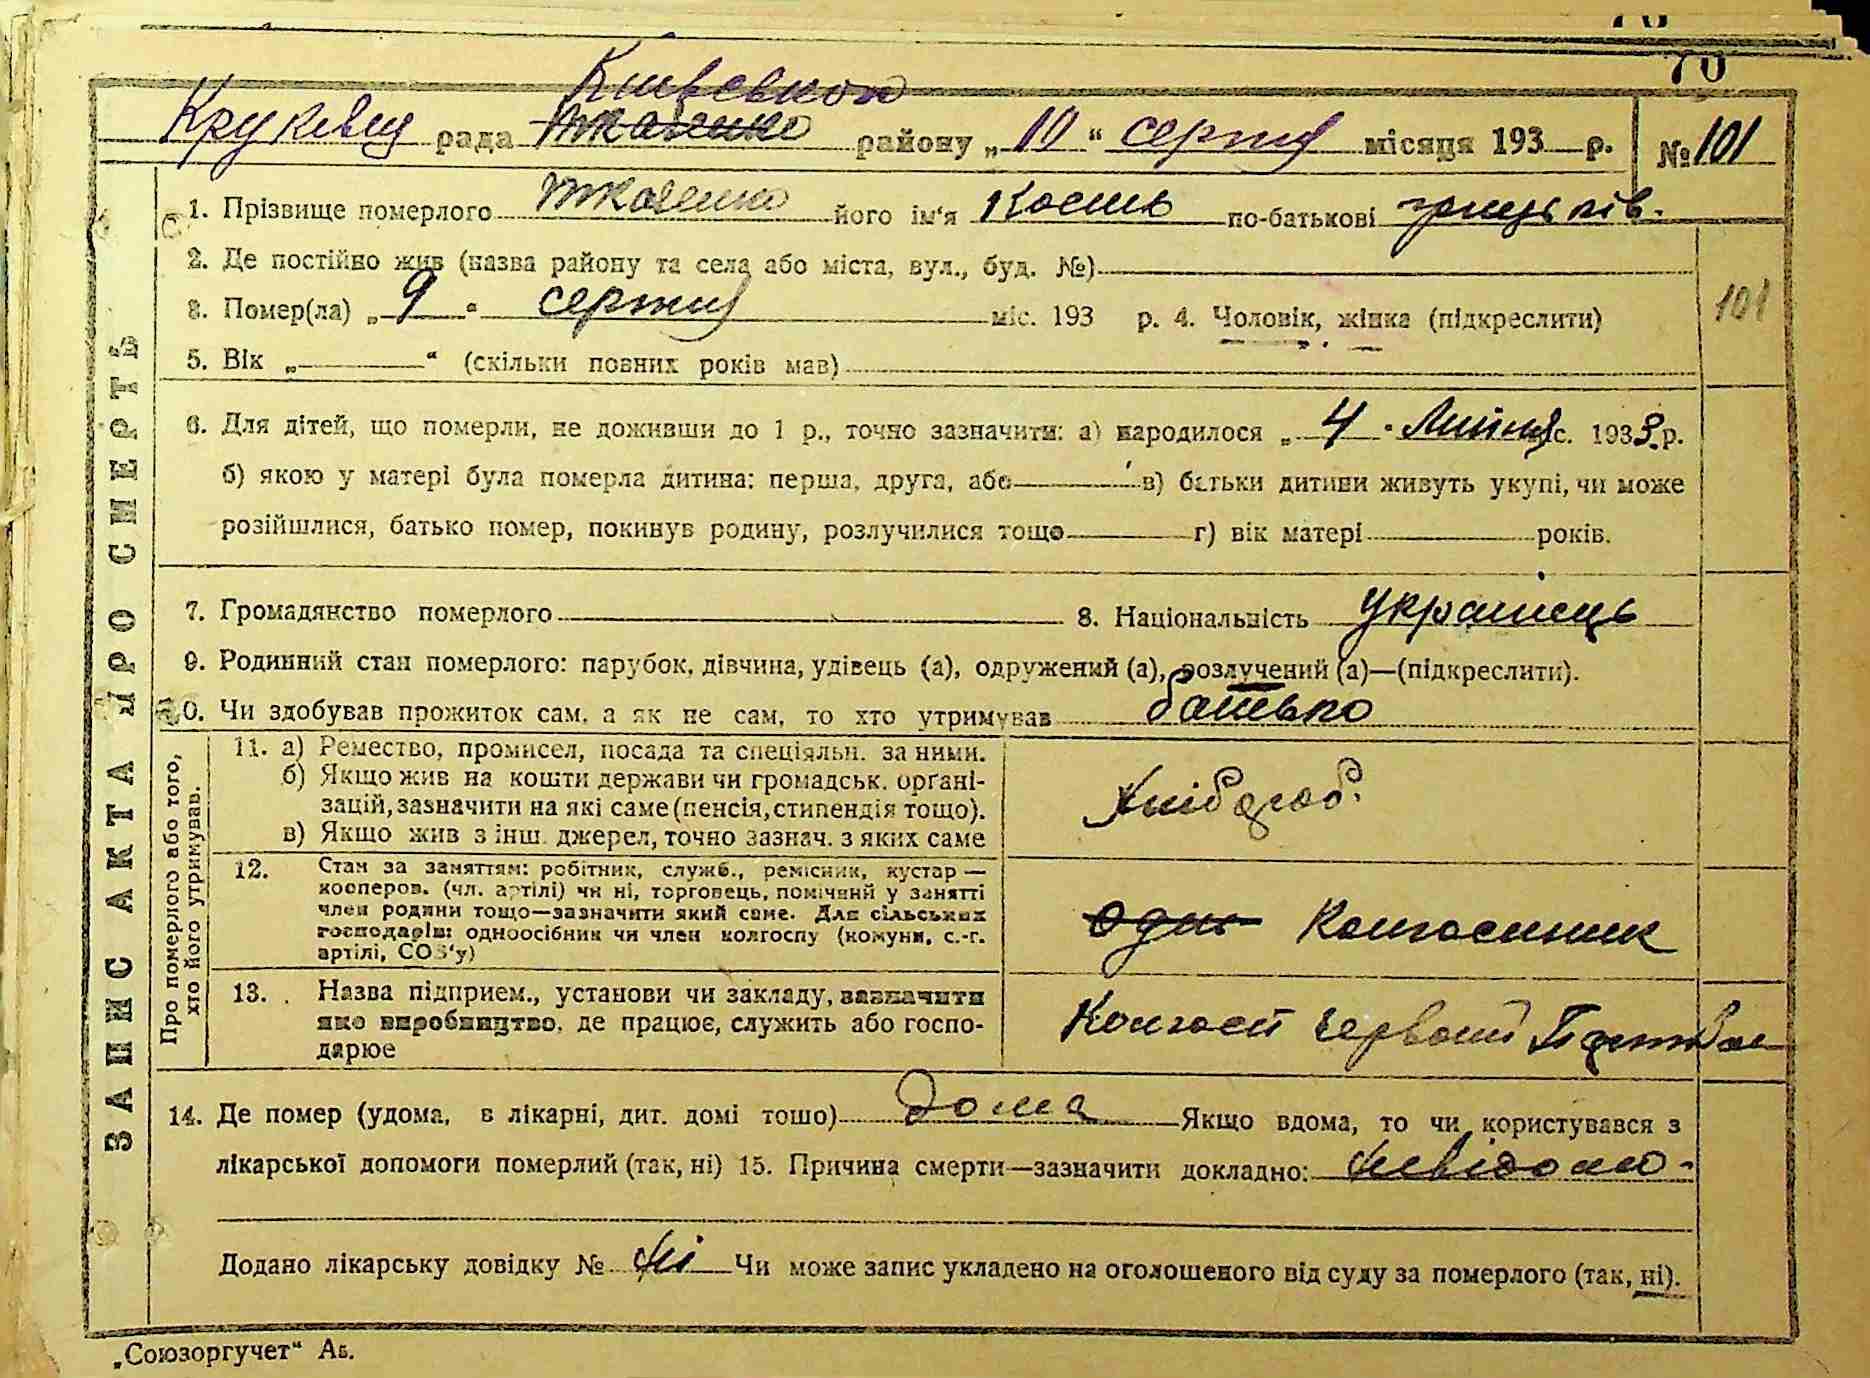 70
Київської
Круківщ рада Ткаченко району „10“ серпня місяця 193 р. № 101
1. Прізвище померлого Ткаченко його ім‘я Кость по-батькові грицьків.
2. Де постійно жив (назва району та села або міста, вул., буд. №)
3. Помер(ла) „9“ серпня міс. 193 р. 4. Чоловік, жінка (підкреслити)
101
5. Вік „ “ (скільки повних років мав)
6. Для дітей, що померли, не доживши до 1 р., точно зазначити: а) народилося „4“ Липня міс. 1933 р.
б) якою у матері була померла дитина: перша, друга, або в) батьки дитини живуть укупі, чи може
розійшлися, батько помер, покинув родину, розлучилися тощо г) вік матері років.
7. Громадянство померлого 8. Національність українець
9. Родинний стан померлого: парубок, дівчина, удівець (а), одружений (а), розлучений (а)—(підкреслити).
10. Чи здобував прожиток сам, а як не сам, то хто утримував батько
ЗАПИС АКТА ПРО СМЕРТЬ
Про померлого або того,
хто його утримував.
11. а) Ремество, промисел, посада та спеціяльн. за ними.
б) Якщо жив на кошти держави чи громадськ. орґані-
зацій, зазначити на які саме (пенсія, стипендія тощо).
в) Якщо жив з інш. джерел, точно зазнач. з яких саме
Хлібороб.
12. Стан за заняттям: робітник, служб., ремісник, кустар —
кооперов. (чл. артілі) чи ні, торговець, помічний у занятті
член родини тощо—зазначити який саме. Для сільських
господарів: одноосібник чи член колгоспу (комуни, с.-г.
артілі, СОЗ‘у)
одн Колгоспник
13. Назва підприєм., установи чи закладу, зазначити
яке виробництво, де працює, служить або госпо-
дарює
Колгосп Червоний
14. Де помер (удома, в лікарні, дит. домі тощо) дома Якщо вдома, то чи користувався з
лікарської допомоги померлий (так, ні) 15. Причина смерти—зазначити докладно: Невідомо-
Додано лікарську довідку № Ні Чи може запис укладено на оголошеного від суду за померлого (так, ні).
„Союзоргучет“ Ав.